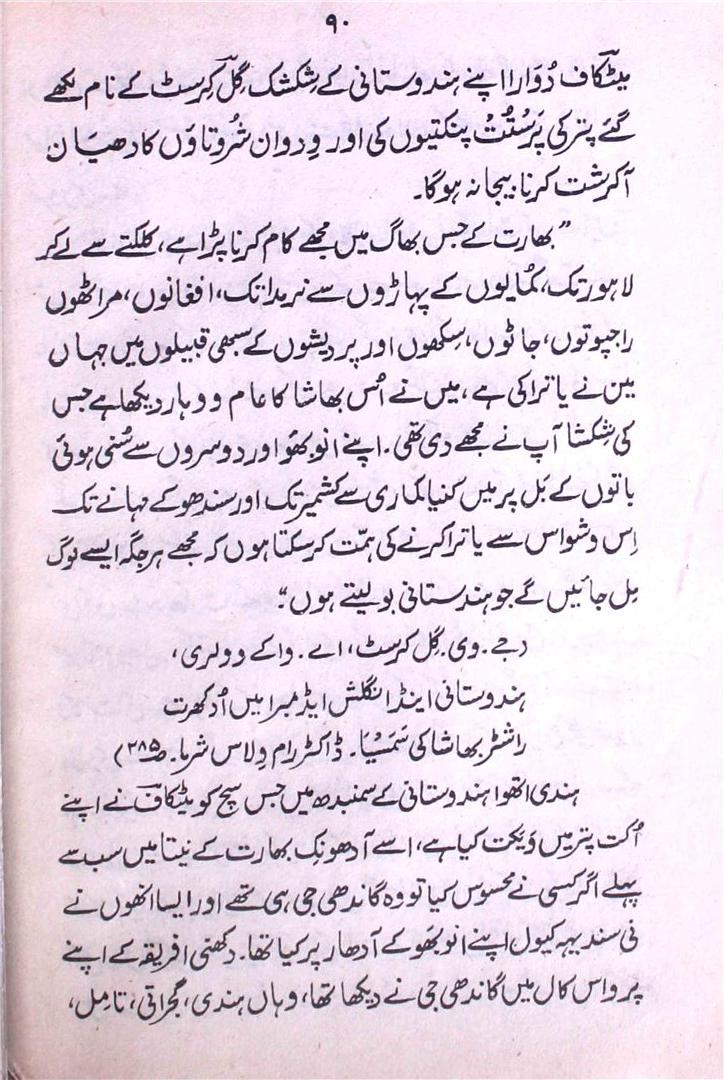 ۹۰
میٹکاف دُوَارا اپنے ہندوستانی کے شِکشک گِل کِرسٹ کے نام لکھے
گئے پتر کی پَرسْتُتْ پنکتیوں کی اور وِدوان شُروتاؤں کا دھیان
آکرشت کرنا بیجا نہ ہوگا۔
”بھارت کے جس بھاگ میں مجھے کام کرنا پڑا ہے، کلکتے سے لے کر
لاہور تک، کُمایوں کے پہاڑوں سے نربدا تک، افغانوں، مراٹھوں
راجپوتوں، جاٹوں، سِکھوں اور پردیشوں کے سبھی قبیلوں میں جہاں
مین نے یاترا کی ہے، میں نے اُس بھاشا کا عام وِوہار دیکھا ہے جس
کی شِکشا آپ نے مجھے دی تھی۔ اپنے انوبھؤ اور دوسروں سے سُنی ہوئی
باتوں کے بَل پر میں کنیا کماری سے کشمیر تک اور سندھو کے مہانے تک
اِس وشواس سے یاترا کرنے کی ہمّت کر سکتا ہوں کہ مجھے ہر جگہ ایسے لوگ
مِل جائیں گے جو ہندستانی بو لیتے ہوں“۔
(جے۔ وی۔ گِل کرسٹ، اے۔ واکے وولری،
ہندوستانی اینڈ انگلش ایڈمبرا میں اُدکھرت
راشٹر بھاشا کی سَمَسْیَا۔ ڈاکٹر رام وِلاس شرما۔ ص ۲۸۵)
ہندی اتھوا ہندوستانی کے سمنبدھ میں جس سچ کو میٹکاف نے اپنے
اُکت پتر میں وَیکت کیا ہے، اسے آدھونِک بھارت کے نیتا میں سب سے
پہلے اگر کسی نے محسوس کیا تو وہ گاندھی جی ہی تھے اور ایسا انھوں نے
نی سندیہہ کیول اپنے انوبھَو کے آدھار پر کیا تھا۔ دکھنی افریقہ کے اپنے
پرواس کال میں گاندھی جی نے دیکھا تھا، وہاں ہندی، گجراتی، تامِل،